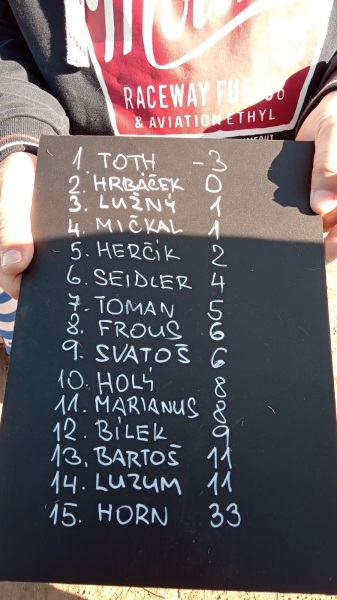 RACEWAY FU
& AVIATION ETHYL
1. TOTH -3
2. HRBÁČEK 0
3. LUŽNÝ 1
4. MIČKAL 1
5. HERČÍK 2
6. SEIDLER 4
7. TOMAN 5
8. FROUS 6
9. SVATOŠ 6
10. HOLÝ 8
11. MARIANUS 8
12. BÍLEK 9
13. BARTOŠ 11
14. LUZUM 11
15. HORN 33